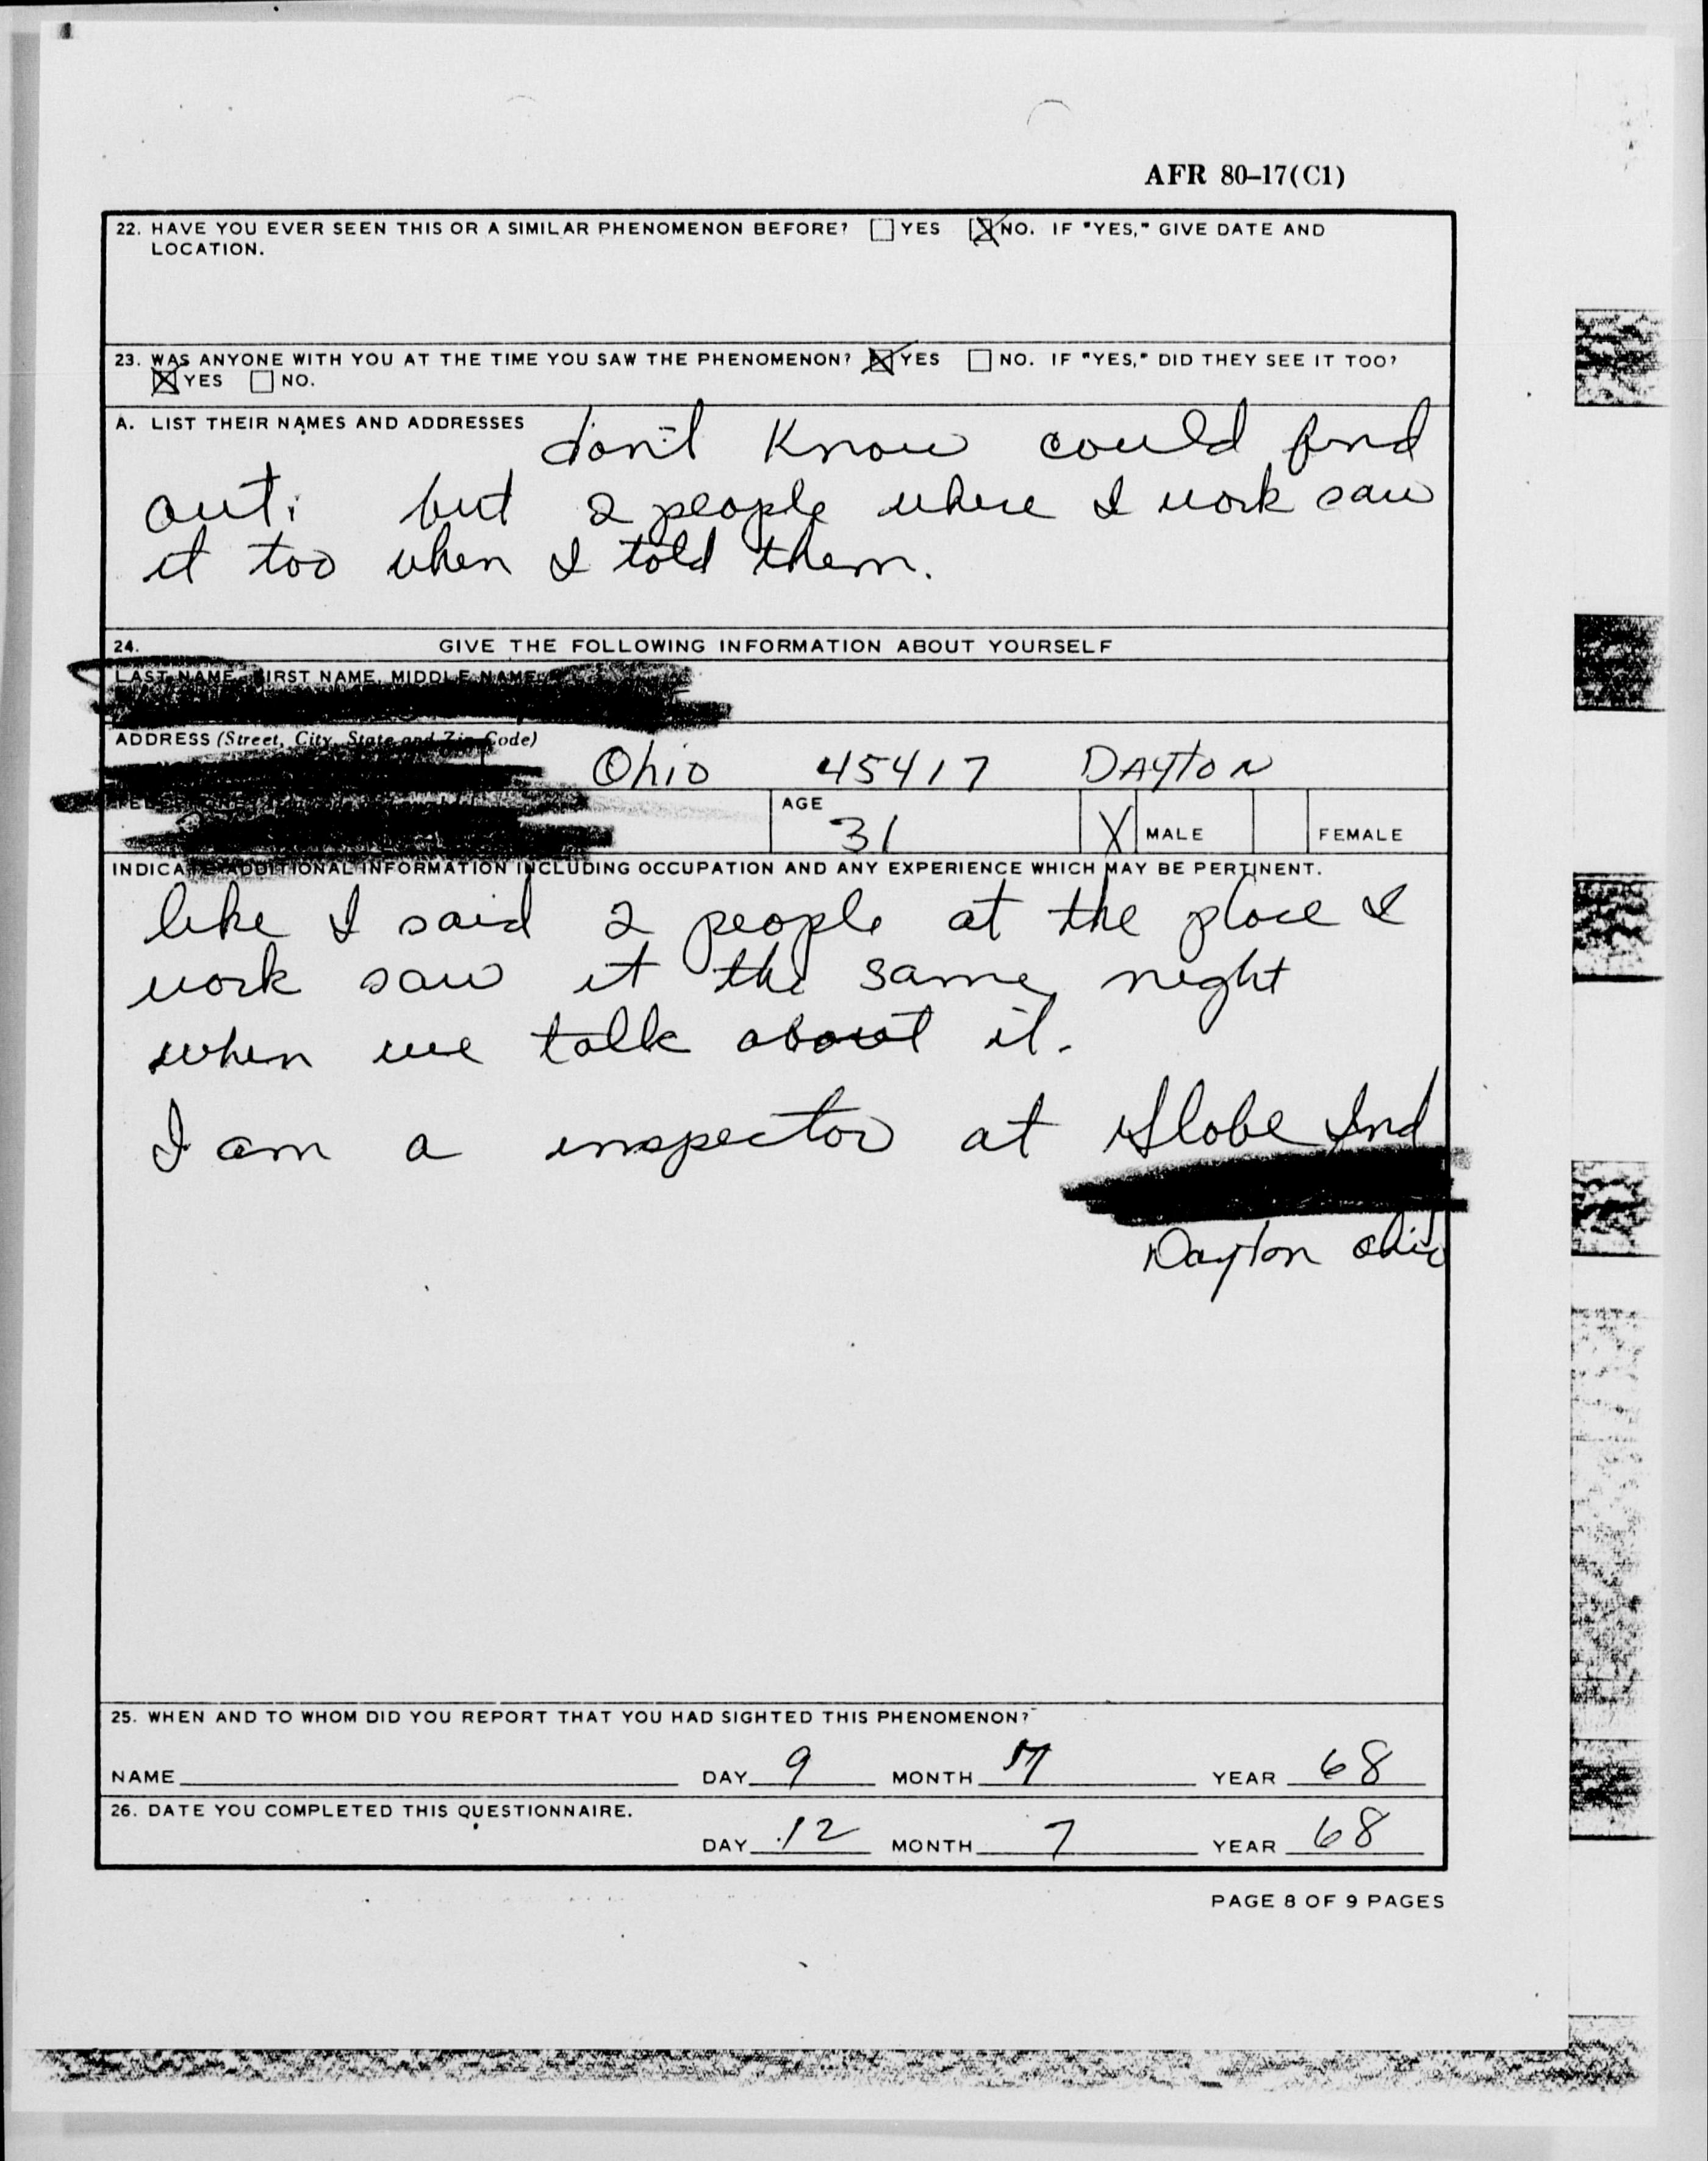 AFR 80-17(C1)
22. HAVE YOU EVER SEEN THIS OR A SIMILAR PHENOMENON BEFORE? YES NO. IF "YES," GIVE DATE AND
LOCATION.
23. WAS ANYONE WITH YOU AT THE TIME YOU SAW THE PHENOMENON? YES NO. IF "YES," DID THEY SEE IT TOO?
YES NO.
A. LIST THEIR NAMES AND ADDRESSES don't Know could find
out. but 2 people where I work saw
it too when I told them.
24. GIVE THE FOLLOWING INFORMATION ABOUT YOURSELF
LAST NAME, FIRST NAME, MIDDLE NAME
ADDRESS (Street, City, State and Zip Code)
Ohio 45417 DAyToN
AGE
31 X MALE FEMALE
INDICATE ADDITIONAL INFORMATION INCLUDING OCCUPATION AND ANY EXPERIENCE WHICH MAY BE PERTINENT.
like I said 2 people at the place I
work saw it the same night
when we talk about it.
I am a inspector at Globe Ind
Dayton Ohio
25. WHEN AND TO WHOM DID YOU REPORT THAT YOU HAD SIGHTED THIS PHENOMENON?
NAME DAY 9 MONTH 7 YEAR 68
26. DATE YOU COMPLETED THIS QUESTIONNAIRE.
DAY 12 MONTH 7 YEAR 68
PAGE 8 OF 9 PAGES